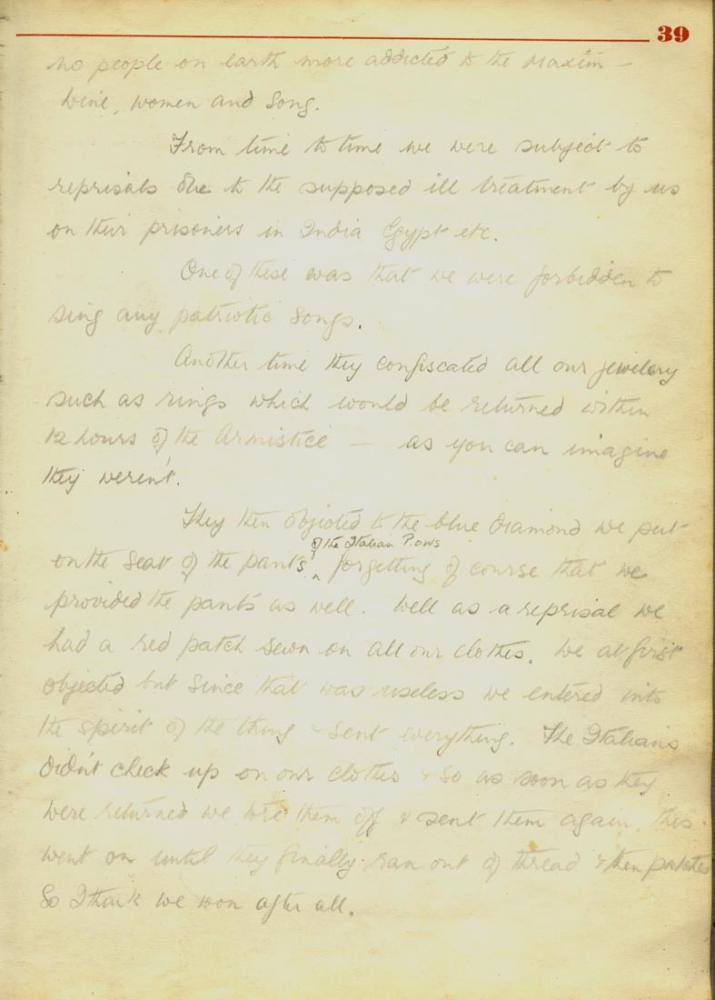 39
no people on earth more addicted to the maxim -
wine, women and song.
From time to time we were subject to
reprisals due to the supposed ill treatment by us
on their prisoners in India Egypt etc.
One of these was that we were forbidden to
sing any patriotic songs.
Another time they confiscated all our jewelery
such as rings which would be returned within
12 hours of the Armistice - as you can imagine
they weren't.
They then objected to the blue diamond we put
of the Italian P.OWs
on the seat of the pants, forgetting of course that we
provided the pants as well. Well as a reprisal we
had a red patch sewn on all our clothes. We at first
objected but since that was useless we entered into
the spirit of the thing & sent everything. The Italians
didn't check up on our clothes & so as soon as they
were returned we tore them off & sent them again. this
went on until they finally ran out of thread & then patches
So I think we won after all.